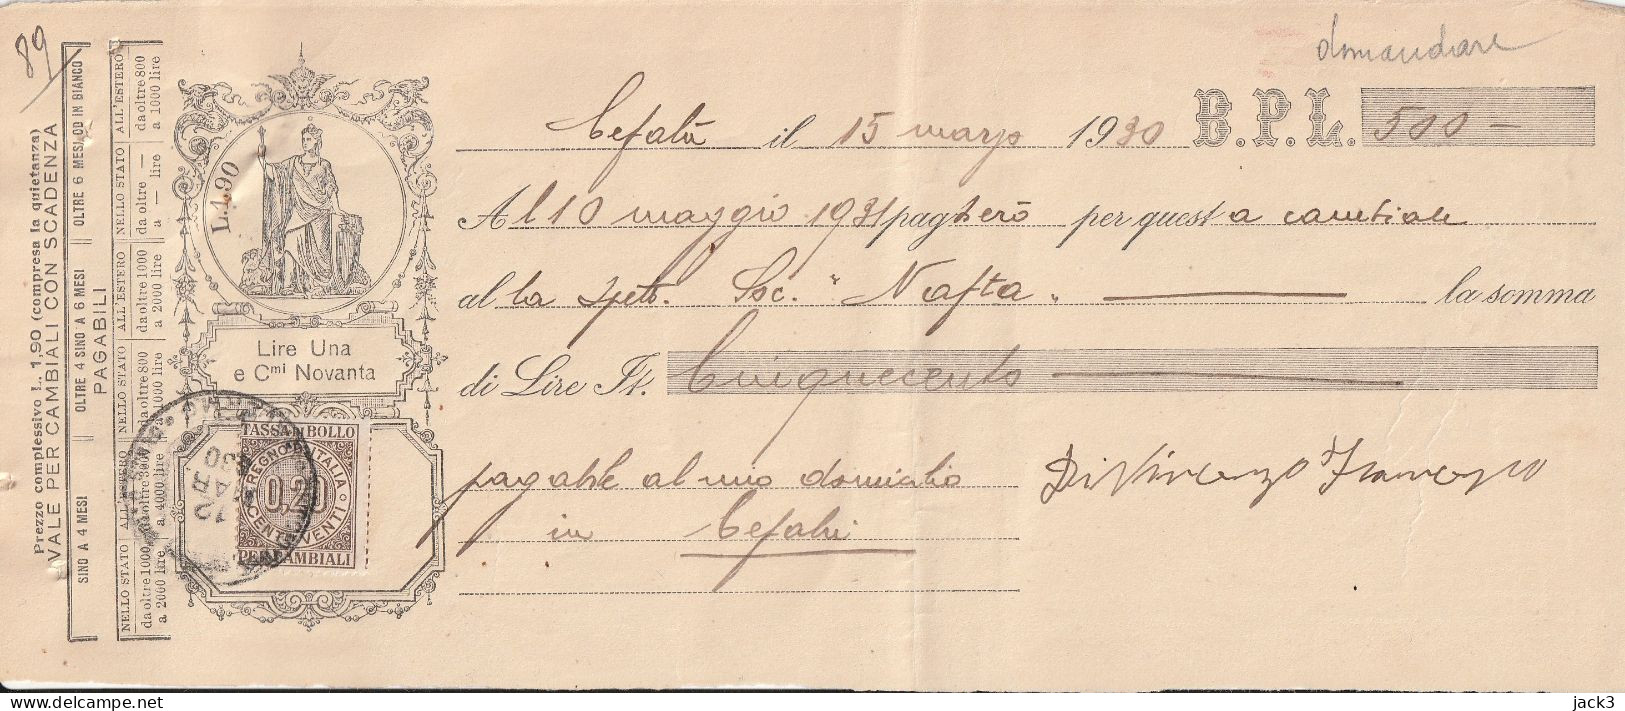 89
domandare
Prezzo complessivo L. 1,90 (compresa la quietanza)
VALE PER CAMBIALI CON SCADENZA
SINO A 4 MESI OLTRE 4 SINO A 6 MESI OLTRE 6 MESI OD IN BIANCO
PAGABILI
NELLO STATO ALL'ESTERO NELLO STATO ALL'ESTERO NELLO STATO ALL'ESTERO
da oltre 1000 da oltre 3000 da oltre 800 da oltre 1000 da oltre — da oltre 800
a 2000 lire a 4000 lire a 2000 lire a — lire a 1000 lire
L. 1,90
Lire Una
e Cmi Novanta
TASSA DI BOLLO
REGNO D'ITALIA
0,20
CENTESIMI VENTI
PER CAMBIALI
Cefalù il 15 marzo 1930 B.P.L. 500 —
Al 10 maggio 1931 pagherò per questa cambiale
alla Spett. Soc. "Nafta" la somma
di Lire It. Cinquecento
pagabile al mio domicilio
in Cefalù
Di Vincenzo Francesco
jack3